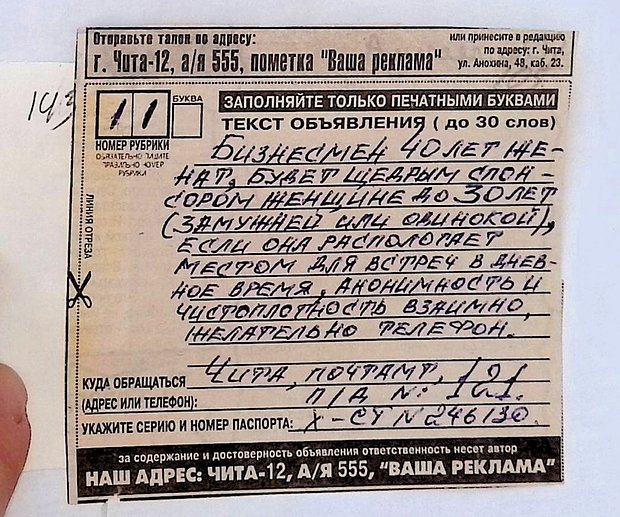 Отправьте талон по адресу:
г. Чита-12, а/я 555, пометка "Ваша реклама"
или принесите в редакцию
по адресу: г. Чита,
ул. Анохина, 48, каб. 23.
143
11
БУКВА
НОМЕР РУБРИКИ
ОБЯЗАТЕЛЬНО ПИШИТЕ
ПРАВИЛЬНО НОМЕР
РУБРИКИ
ЛИНИЯ ОТРЕЗА
ЗАПОЛНЯЙТЕ ТОЛЬКО ПЕЧАТНЫМИ БУКВАМИ
ТЕКСТ ОБЪЯВЛЕНИЯ ( до 30 слов)
БИЗНЕСМЕН 40 ЛЕТ ЖЕ-
НАТ, БУДЕТ ЩЕДРЫМ СПОН-
СОРОМ ЖЕНЩИНЕ ДО 30 ЛЕТ
(ЗАМУЖНЕЙ ИЛИ ОДИНОКОЙ),
ЕСЛИ ОНА РАСПОЛОГАЕТ
МЕСТОМ ДЛЯ ВСТРЕЧ В ДНЕВ-
НОЕ ВРЕМЯ. АНОНИМНОСТЬ И
ЧИСТОПЛОТНОСТЬ ВЗАИМНО,
ЖЕЛАТЕЛЬНО ТЕЛЕФОН.
КУДА ОБРАЩАТЬСЯ ЧИТА, ПОЧТАМТ, 121
(АДРЕС ИЛИ ТЕЛЕФОН): П/Д N: 121.
УКАЖИТЕ СЕРИЮ И НОМЕР ПАСПОРТА: X-СТ N 246130.
за содержание и достоверность объявления ответственность несет автор
НАШ АДРЕС: ЧИТА-12, А/Я 555, "ВАША РЕКЛАМА"